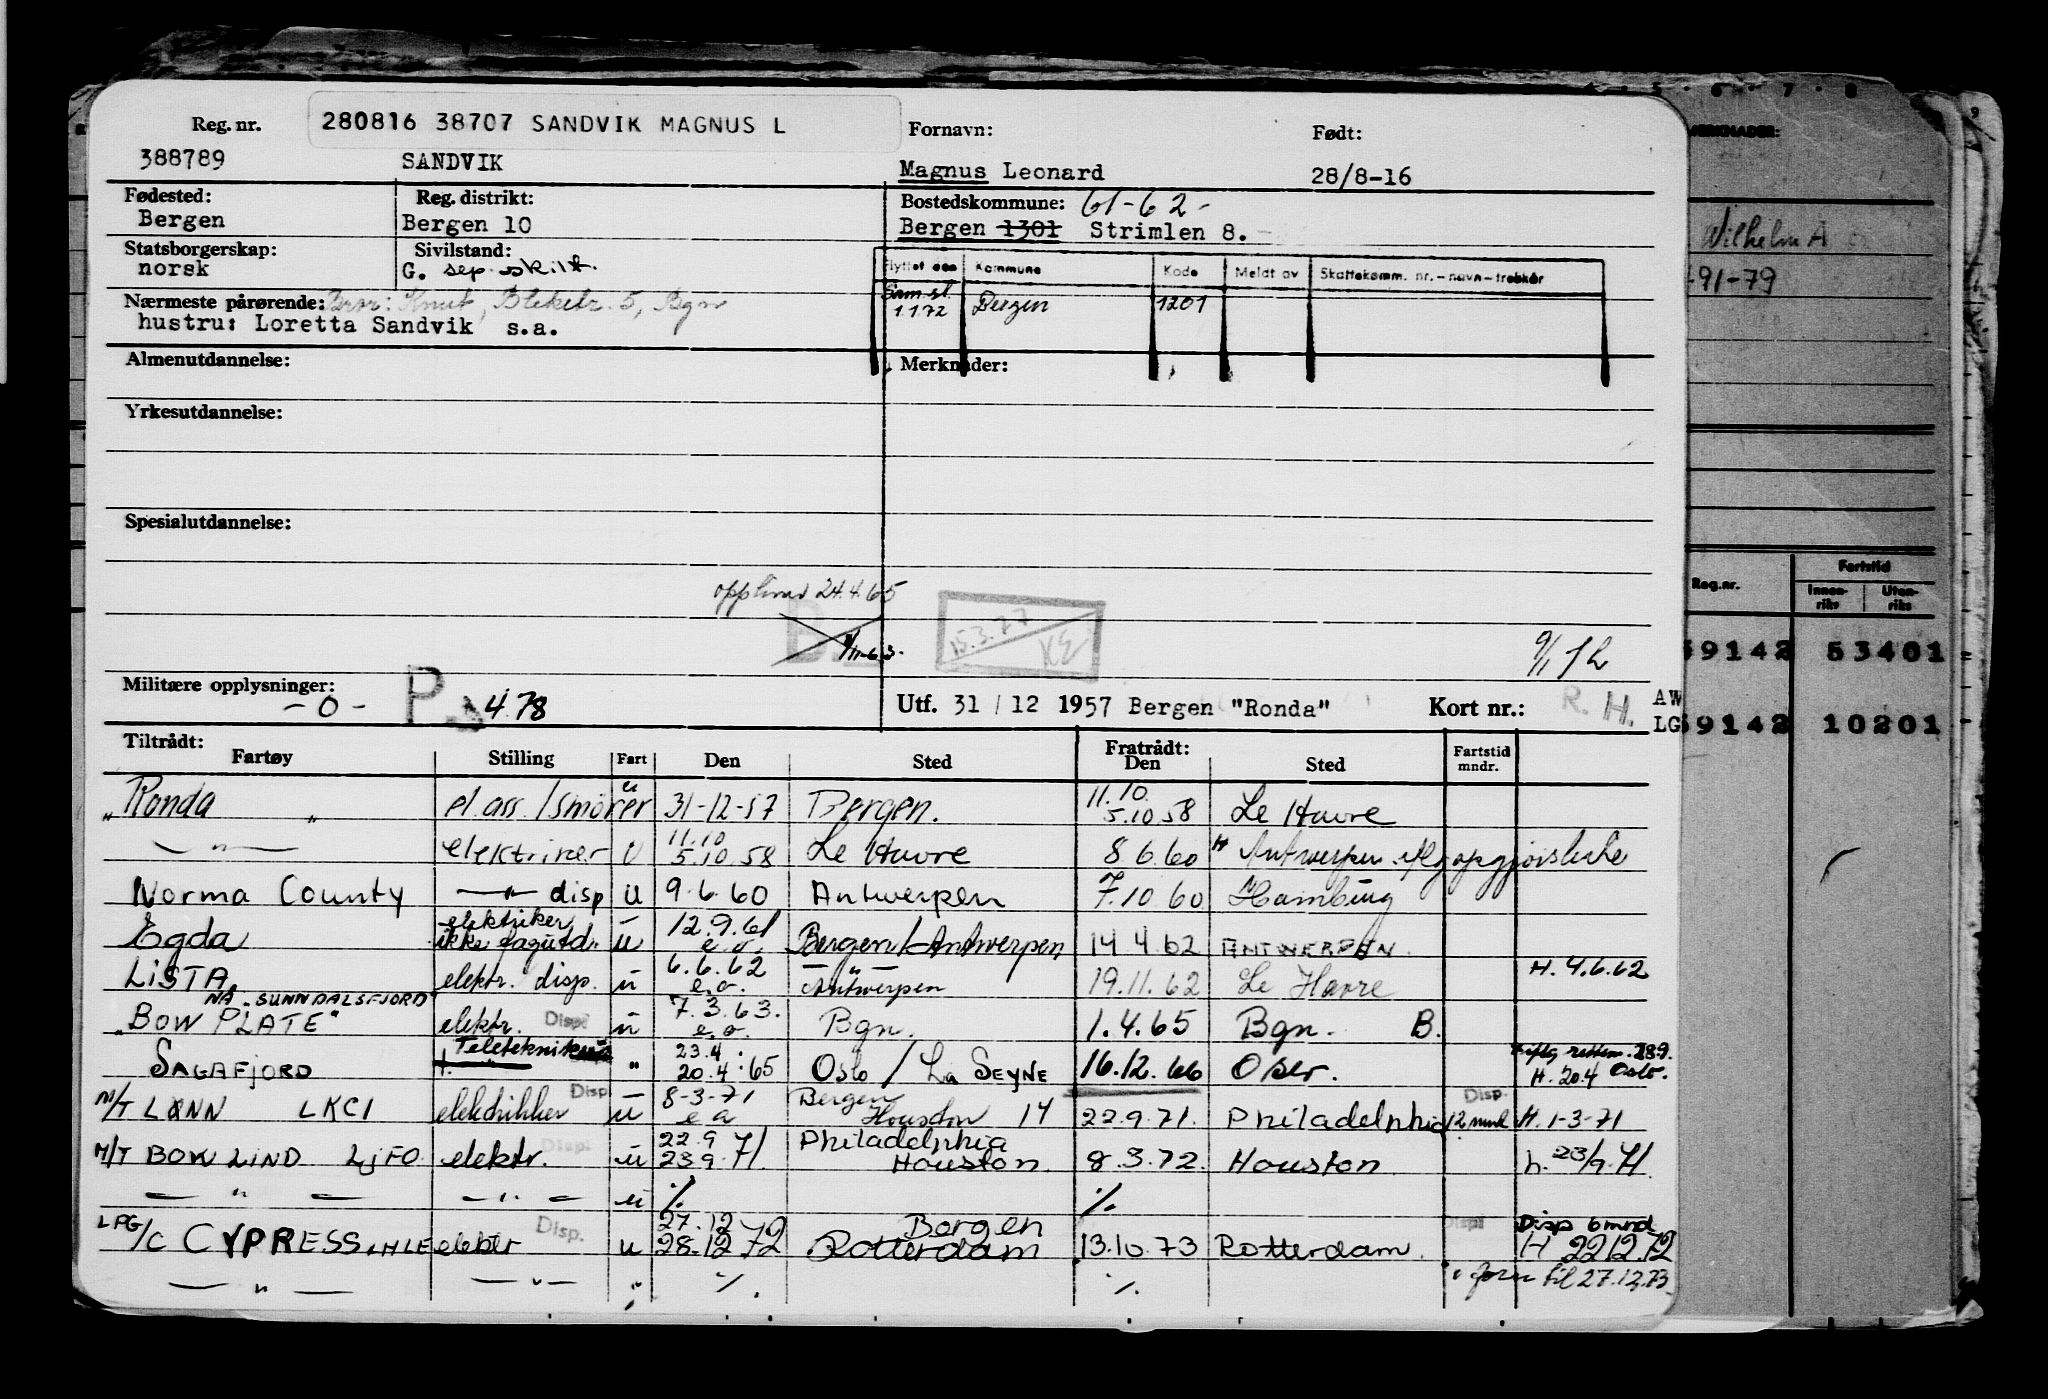 Reg. nr. 280816 38707 SANDVIK MAGNUS L Fornavn: Født:
388789 SANDVIK Magnus Leonard 28/8-16
Fødested: Reg. distrikt: Bostedskommune: 61-62-
Bergen Bergen 10 Bergen 1301 Strimlen 8.
Statsborgerskap: Sivilstand:
norsk G. sep. skilt.
Flyttet den Kommune Kode Meldt av Skattekomm. nr.-navn-trekkår
Sam.st. 1.1.72 Bergen 1201
Nærmeste pårørende: Bror: Knut, Bleketr. 5, Bgn
hustru: Loretta Sandvik s.a.
Almenutdannelse: Merknader:
Yrkesutdannelse:
Spesialutdannelse:
24.4.65
15.3.77
Militære opplysninger: -0- P. 4.78
Utf. 31/12 1957 Bergen "Ronda" Kort nr.: R. H.
Tiltrådt: Fratrådt:
Fartøy Stilling Fart Den Sted Den Sted Fartstid mndr.
"Ronda" el. ass. /smører u 31-12-57 Bergen. 11.10. 5.10.58 Le Havre
— " — elektriker U 11.10 5.10.58 Le Havre 8.6.60 H Antwerpen
Norma County — " — disp u 9.6.60 Antwerpen 7.10.60 Hamburg
Egda elektriker ikke fagutd. u 12.9.61 e.o. Bergen/Antwerpen 14.4.62 ANTWERPEN
LISTA elektr. disp. u 6.6.62 e.o. Antwerpen 19.11.62 Le Havre H. 4.6.62
NÅ. SUNNDALSFJORD
"BOW PLATE" elektr. Disp u 7.3.63. e.o. Bgn. 1.4.65 Bgn. B.
SAGAFJORD Teletekniker " 23.4 20.4.65 Oslo / La SEYNE 16.12.66 Oslo. H. 20.4 Oslo.
M/T LØNN LKCI elektrikker Disp u 8-3-71 e a Bergen Houston 14 22.9.71. Philadelphia Disp. 12 mnd H. 1-3-71
M/T BOW LIND LJFO elektr. Disp u 22.9 23.9.71. Philadelphia Houston 8.3.72. Houston h. 23/9.71
— " — — " — u % %
LPG/C CYPRESS, HLE elektr Disp. u 27.12 28.12 72 Bergen Rotterdam 13.10.73 Rotterdam. Disp 6 mnd H 22.12.72
— " — — " — " % % til 27.12.73
MERKNADER:
Wilhelm A
-91-79
Reg.nr. Fartstid
Innenriks Utenriks
59142 53401
AW
LG 59142 10201